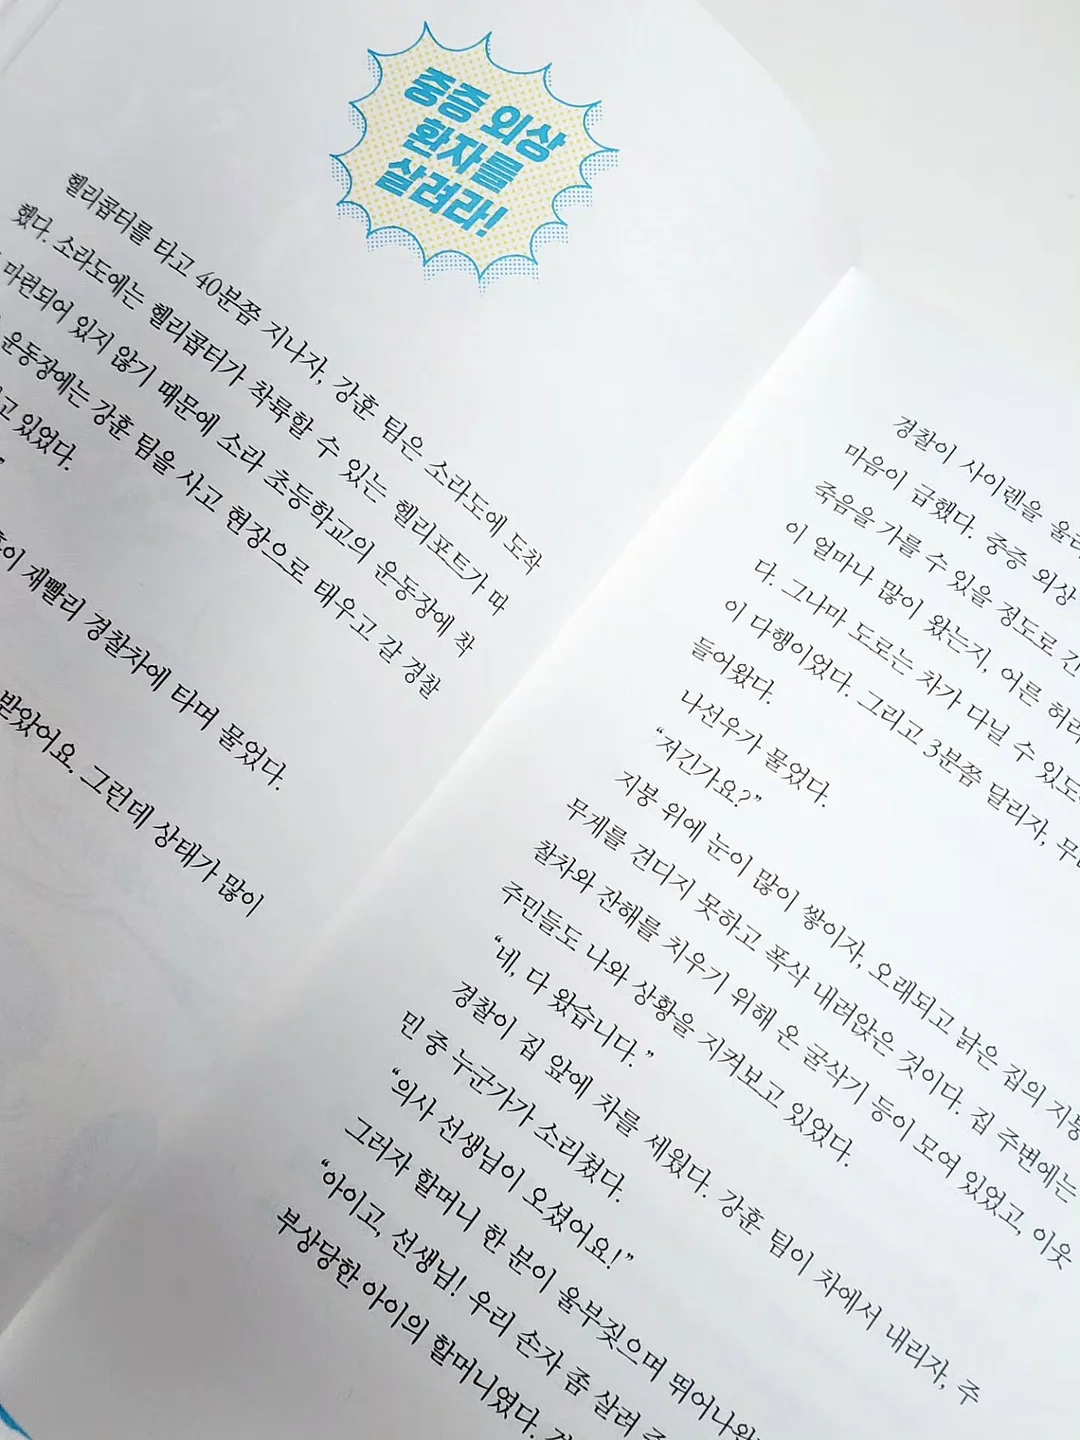 중증 외상
환자를
살려라!
헬리콥터를 타고 40분쯤 지나자, 강훈 팀은 소라도에 도착
했다. 소라도에는 헬리콥터가 착륙할 수 있는 헬리포트가 따
마련되어 있지 않기 때문에 소라 초등학교의 운동장에 착
운동장에는 강훈 팀을 사고 현장으로 태우고 갈 경찰
있었다.
재빨리 경찰차에 타며 물었다.
받았어요. 그런데 상태가 많이
경찰이 사이렌을
마음이 급했다. 중증 외상
죽음을 가를 수 있을 정도로
이 얼마나 많이 왔는지, 어른
다. 그나마 도로는 차가 다닐 수
이 다행이었다. 그리고 3분쯤 달리자,
들어왔다.
나선우가 물었다.
“저긴가요?”
지붕 위에 눈이 많이 쌓이자, 오래되고 낡은 집의
무게를 견디지 못하고 폭삭 내려앉은 것이다. 집 주변에는
찰차와 잔해를 치우기 위해 온 굴삭기 등이 모여 있었고, 이웃
주민들도 나와 상황을 지켜보고 있었다.
“네, 다 왔습니다.”
경찰이 집 앞에 차를 세웠다. 강훈 팀이 차에서 내리자, 주
민 중 누군가가 소리쳤다.
“의사 선생님이 오셨어요!”
그러자 할머니 한 분이 울부짖으며
“아이고, 선생님! 우리 손자 좀 살려
부상당한 아이의 할머니였다.